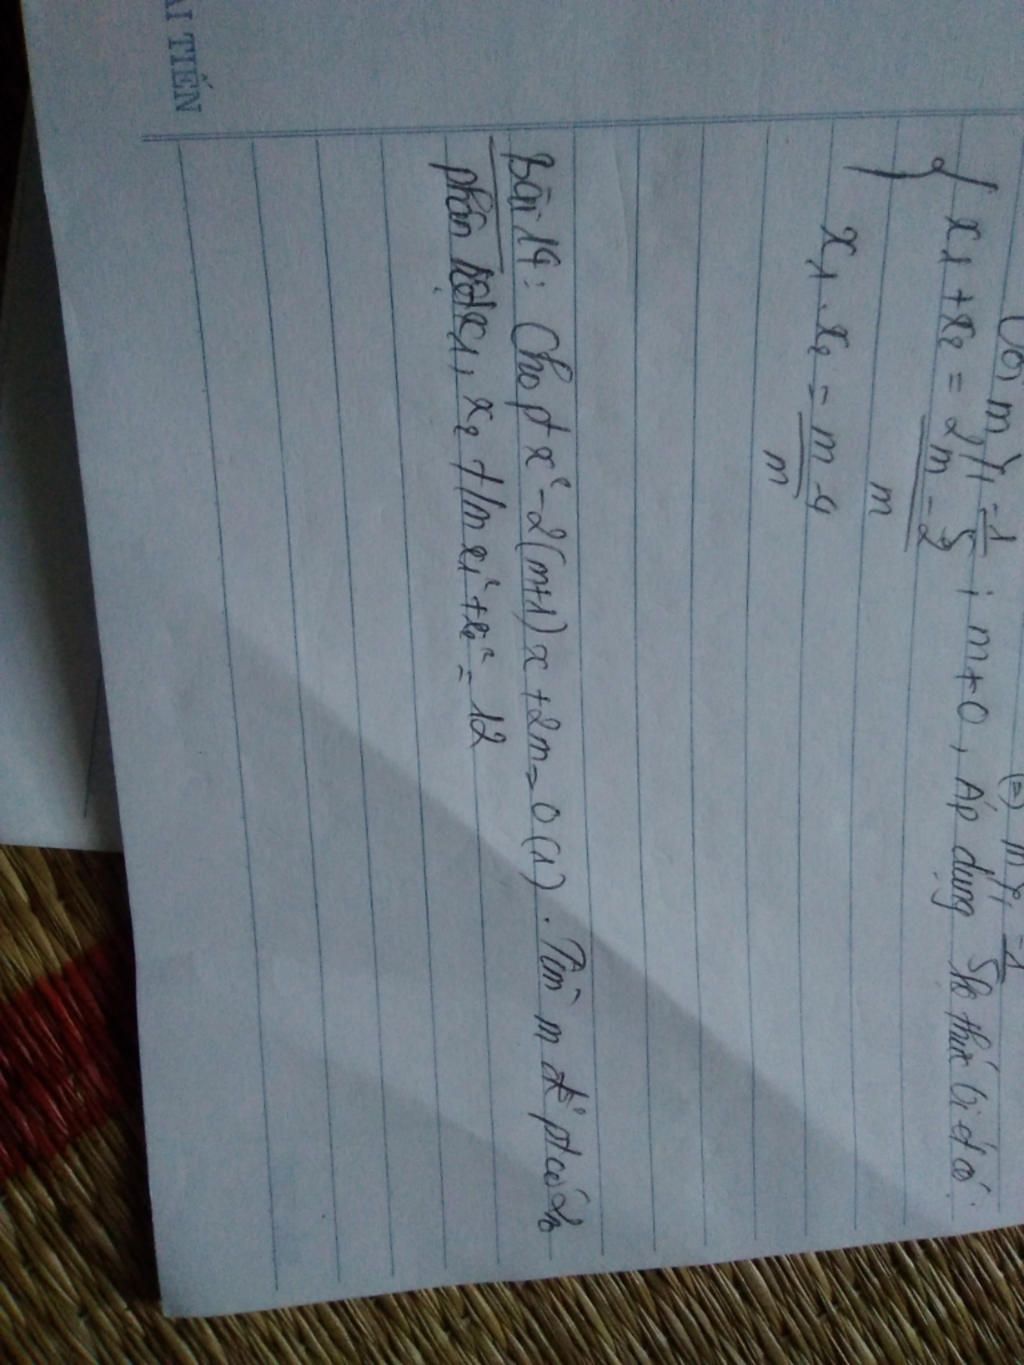 Với m ≥ -1/5 ; m ≠ 0, Áp dụng hệ thức Vi-ét có.
x₁ + x₂ = 2m - 2 / m
x₁ . x₂ = m - 4 / m
Bài 14: Cho pt x² - 2(m+1)x + 2m = 0 (1). Tìm m để pt có 2n
phân biệt x₁, x₂ t/m x₁² + x₂² = 12
AI TIẾN